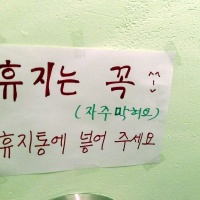 휴지는 꼭 ^^
(자주 막혀요)
휴지통에 넣어 주세요